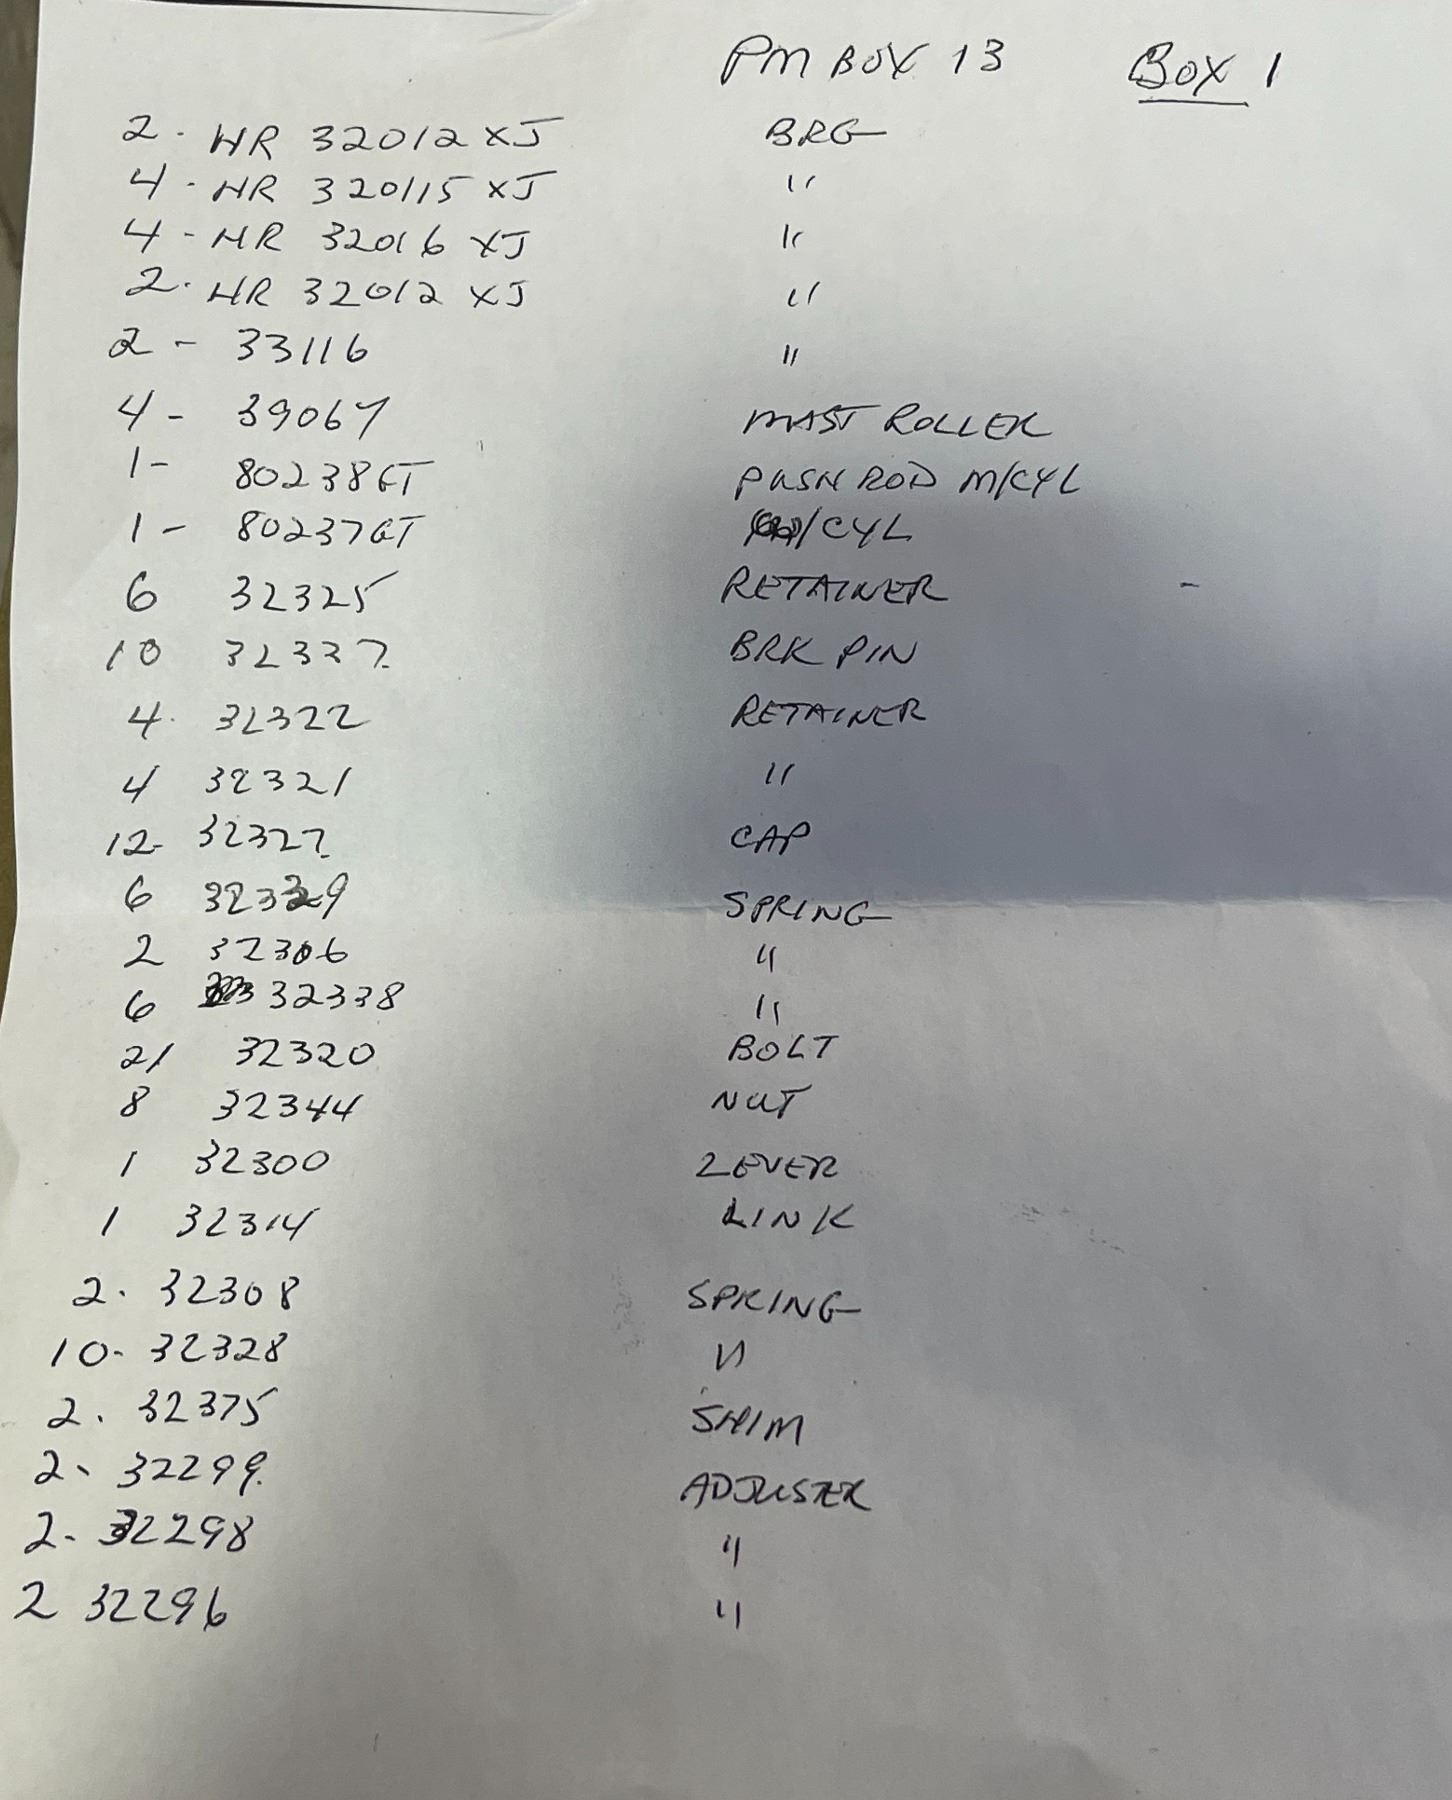 PM BOX 13 BOX 1
2 - HR 32012 XJ BRG
4 - HR 320115 XJ "
4 - HR 32016 XJ "
2 - HR 32012 XJ "
2 - 33116 "
4 - 39067 MAST ROLLER
1 - 80238GT PUSH ROD M/CYL
1 - 80237GT /CYL
6 32325 RETAINER
10 32337. BRK PIN
4. 32322 RETAINER
4 32321 "
12- 32327. CAP
6 32329 SPRING
2 32306 "
6 32338 "
21 32320 BOLT
8 32344 NUT
1 32300 LEVER
1 32314 LINK
2. 32308 SPRING
10- 32328 "
2. 32375 SHIM
2- 32299. ADJUSTER
2- 32298 "
2 32296 "